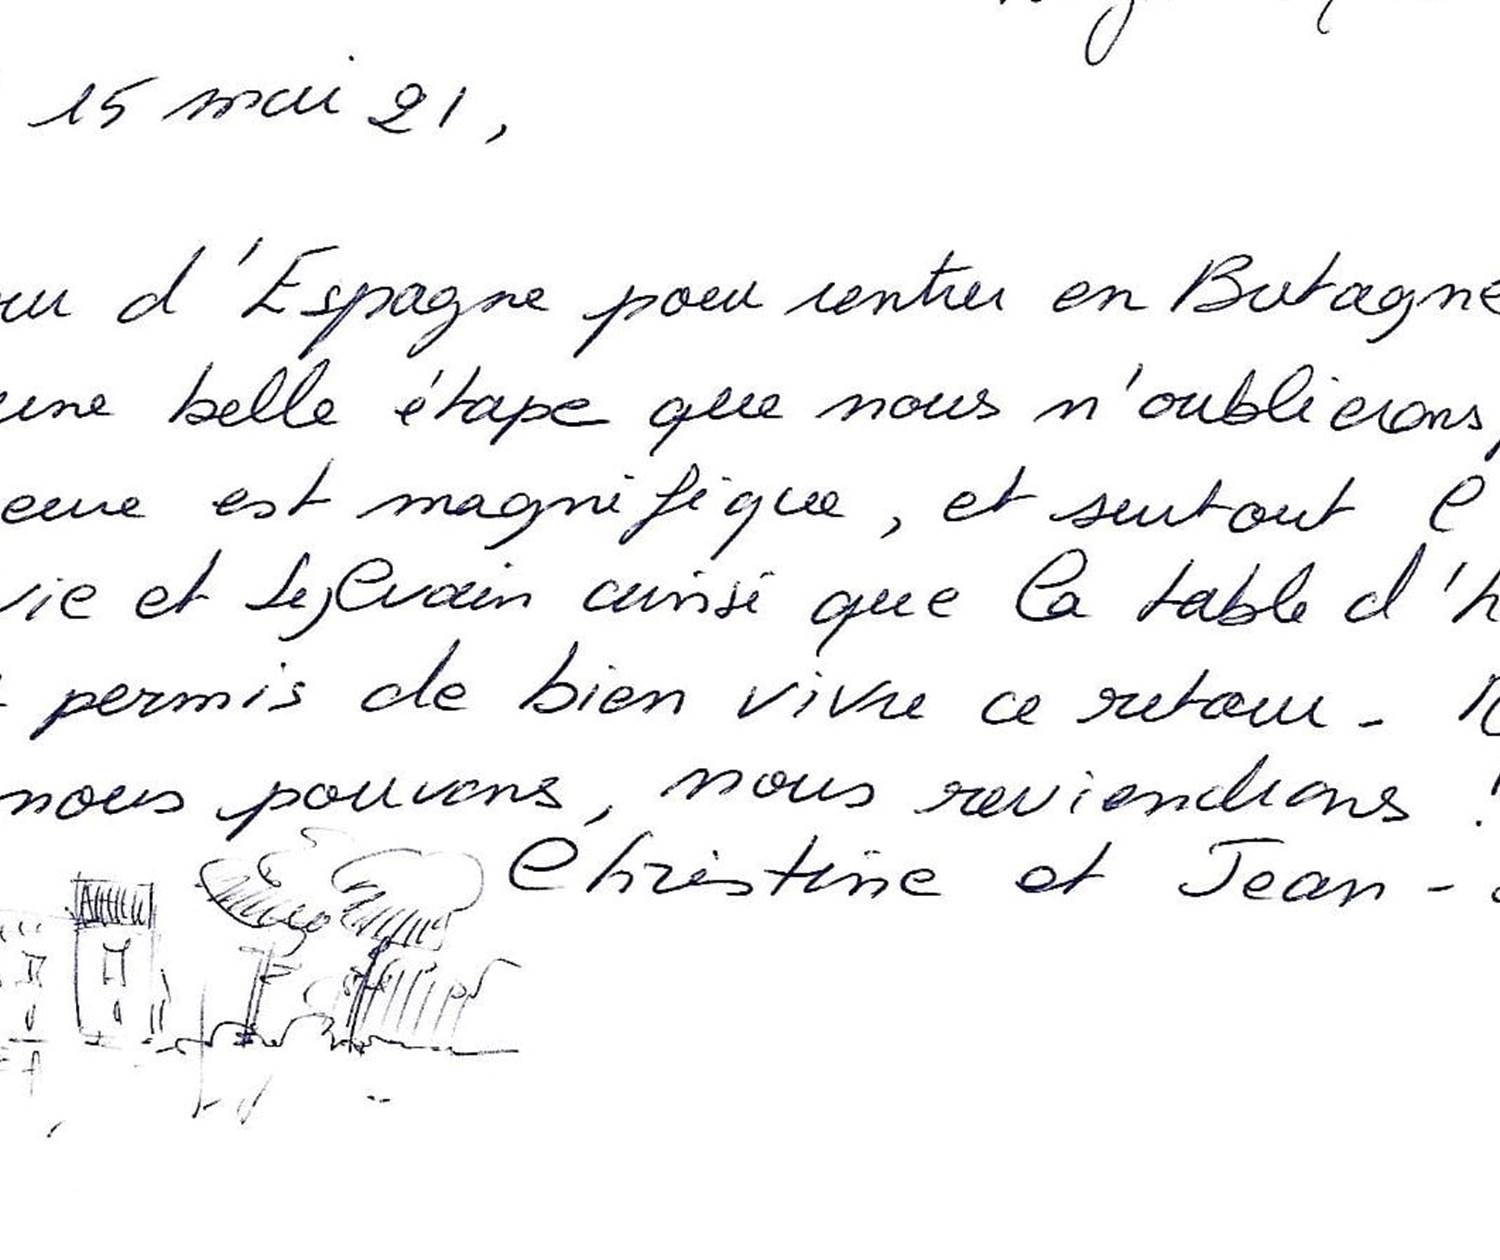 15 mai 21,
d'Espagne pour rentrer en Bretagne
une belle étape que nous n'oublierons,
est magnifique, et surtout l
vie et Sylvain ainsi que la table d'h
permis de bien vivre ce retour - N
nous pouvons, nous reviendrons !
Christine et Jean -